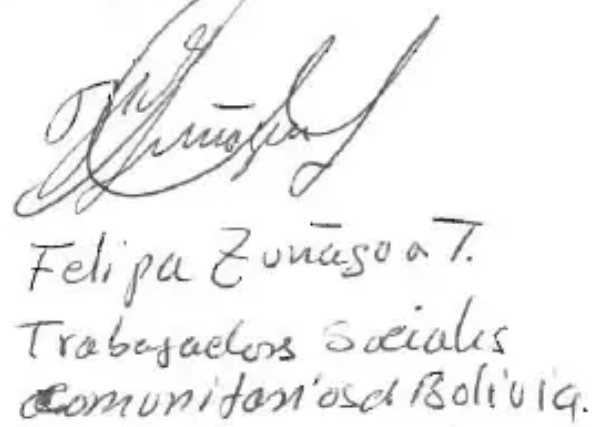 Felipa Zuñagoa T.
Trabajadors Sociales
comunitarios d Bolivia.